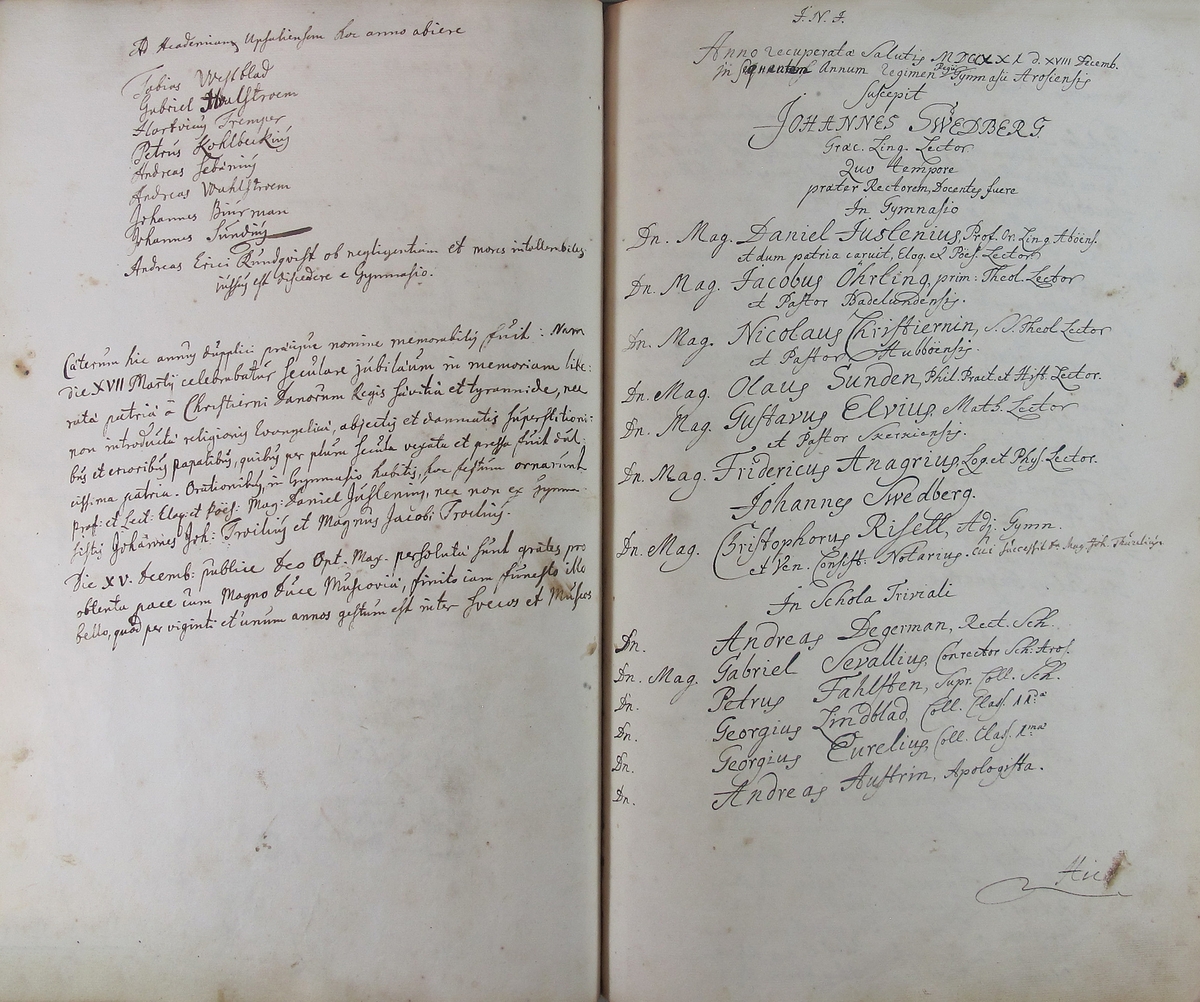 Ad Academiam Upsaliensem hoc anno abiere
Tobias Westblad
Gabriel Wahlstroem
Hartvicus Tremper
Petrus Kohlbeckius
Andreas Sebanius
Andreas Wahlstroem
Johannes Biurman
Johannes Sundius
Andreas Erici Rundqvist ob negligentiam et mores intollerabiles,
jussus est discedere e Gymnasio.
Cæterum hic annus duplici præcipue nomine memorabilis fuit: Nam
die XVII Martij celebrabatur seculare jubilæum in memoriam libe:
ratæ patriæ â Christierni Danorum Regis sævitia et tyrannide, nec
non introductæ religionis Evangelicæ, abjectis et damnatis superstitioni:
bus et erroribus papatibus, quibus per plura secula vexata et pressa fuit dul:
cissima patria. Orationibus, in Gymnasio habitis, hoc festum ornarunt
Prof: et Lect: Eloq: et Poës: Mag: Daniel Juslenius, nec non ex Gymna:
sistis Johannes Joh: Troilius et Magnus Jacobi Troilius.
Die XV. Decemb: publice Deo Opt. Max. persolutæ sunt grates pro
obtenta pace cum Magno Duce Muscoviæ, finito jam funesto illo
bello, quod per viginti et unum annos gestum est inter Svecos et Muscos
I. N. J.
Anno recuperatæ Salutis MDCCXXI d. XVIII Decemb.
in sequentem Annum Regimen Regii Gymnasii Arosiensis
suscepit
JOHANNES SWEDBERG
Græc. Ling. Lector.
Quo tempore
præter Rectorem, Docentes fuere
In Gymnasio
Dn. Mag. Daniel Juslenius, Prof. Or. Ling. Aboëns.
et dum patria caruit, Eloq. et Poës. Lector
Dn. Mag. Jacobus Öhrling, prim: Theol. Lector
et Pastor Badelundensis.
Dn. Mag. Nicolaus Christiernin, S. S. Theol Lector
et Pastor Hubboënsis.
Dn. Mag. Olaus Sunden, Phil. Pract. et Hist. Lector.
Dn. Mag. Gustavus Elvius, Math. Lector
et Pastor Skerkiensis.
Dn. Mag. Fridericus Anagrius, Log. et Phys. Lector.
Johannes Swedberg.
Dn. Mag. Christophorus Risell, Adj. Gymn.
et Ven. Consist: Notarius. cui successit Dn. Mag. Joh.
In Schola Triviali
Dn. Andreas Degerman, Rect. Sch.
Dn. Mag. Gabriel Sevallius, Conrector Sch: Aros.
Dn. Petrus Fahlsten, Supr. Coll. Sch.
Dn. Georgius Lindblad, Coll. Class. IIdæ
Dn. Georgius Eurelius, Coll. Clas. 1mæ
Dn. Andreas Austrin, Apologista.
Hic